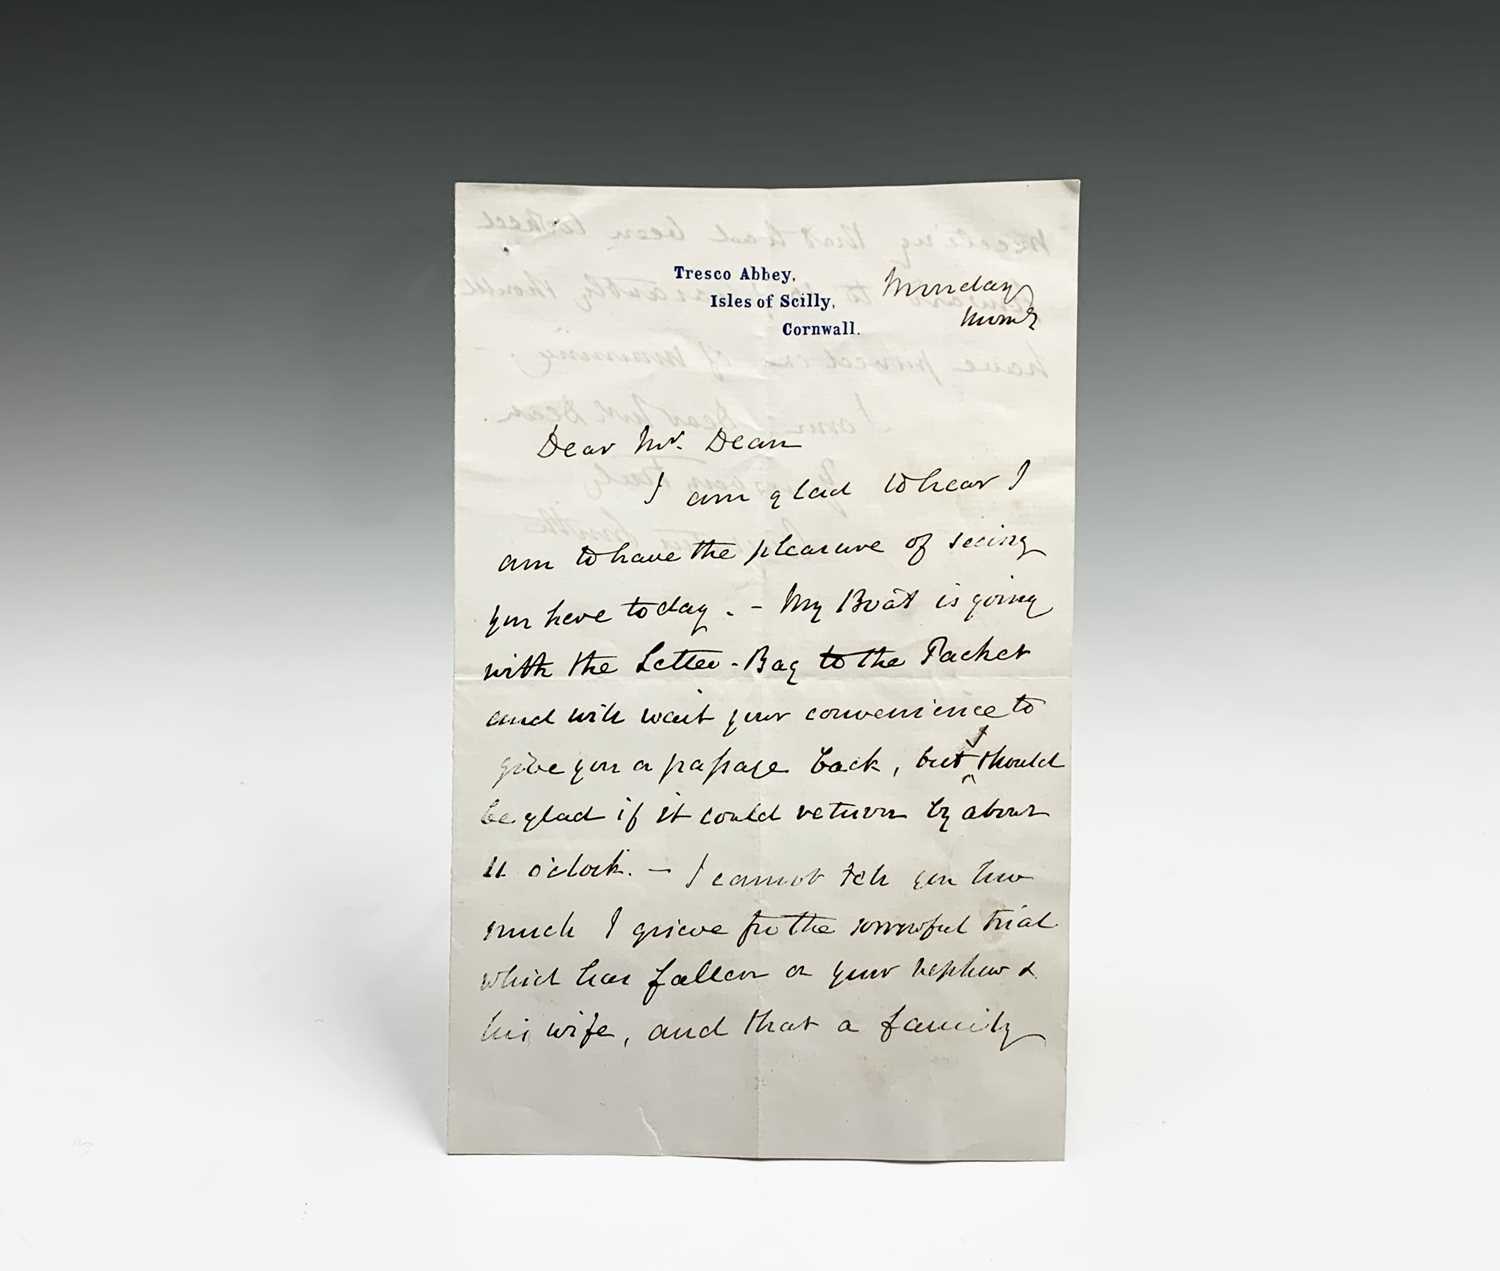 Tresco Abbey,
Isles of Scilly,
Cornwall.
Monday
Morng
Dear Mr. Dean
I am glad to hear I
am to have the pleasure of seeing
you here today. - My Boat is going
with the Letter-Bag to the Packet
and will wait your convenience to
give you a passage back, but I should
be glad if it could return by about
11 o'clock. - I cannot tell you how
much I grieve for the sorrowful trial
which has fallen on your nephew &
his wife, and that a family
meeting that had been looked
forward to should
have proved one of mourning. -
I am Dear Mr. Dean.
Smith